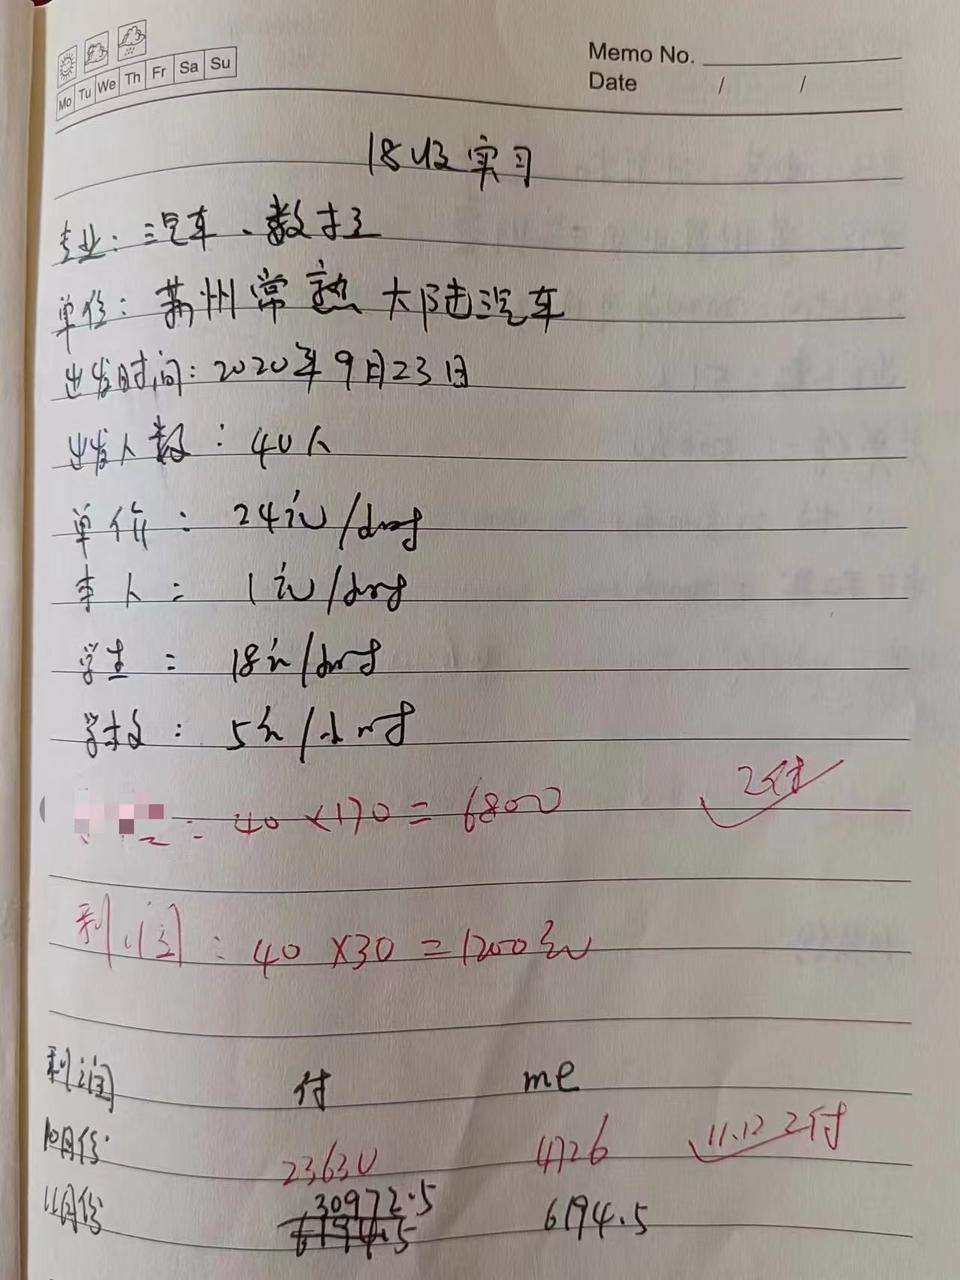 Mo Tu We Th Fr Sa Su
Memo No.
Date / /
18级实习
专业：汽车、数控
单位：苏州常熟大陆汽车
出发时间：2020年9月23日
出发人数：40人
单价：24元/
本人：1元/
学生：18元/
学校：5元/
: 40×170=6800 已付
利润：40×30=1200元
利润 付 me
10月份 23630 4726 11.12已付
11月份 30972.5 6194.5
6194.5